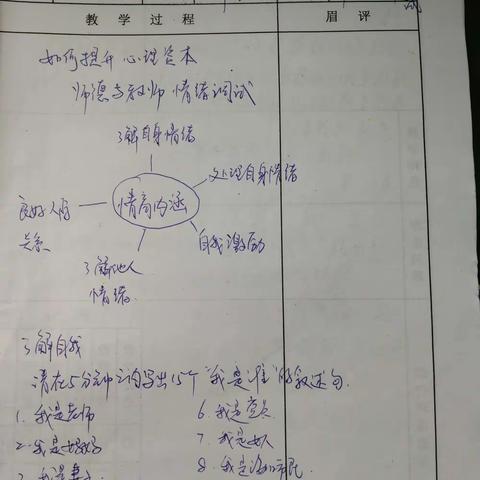 教学过程
眉评
如何提升心理资本
师德与教师情绪调试
了解自身情绪
处理自身情绪
良好人际
关系
情商内涵
自我激励
了解他人
情绪
了解自我
请在5分钟之内写出15个"我是谁"的叙述句.
1. 我是老师
6. 我是党员
2. 我是妈妈
7. 我是女人
3. 我是妻子
8. 我是海口市民.